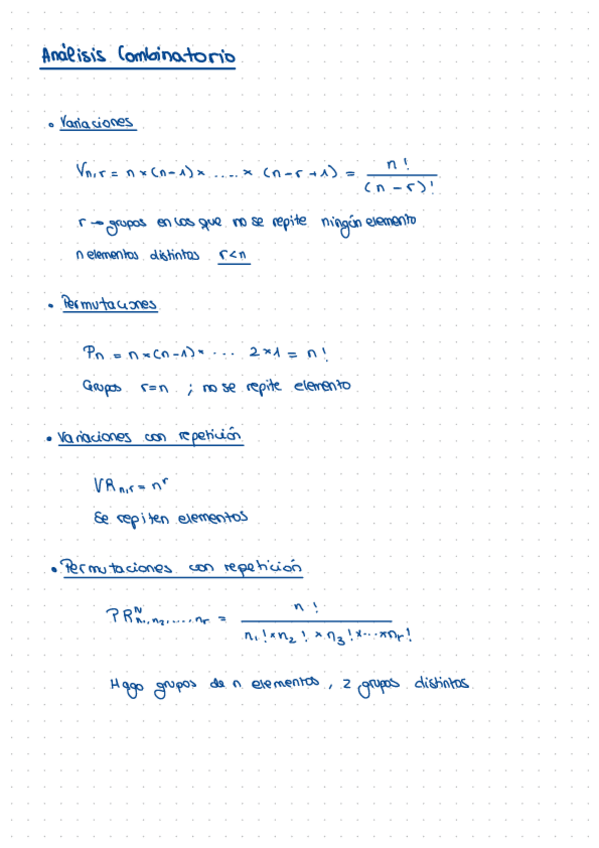 Análisis Combinatorio
• Variaciones
Vn,r = n × (n-1) × ..... × (n-r+1) = n! / (n-r)!
r → grupos en los que no se repite ningún elemento
n elementos distintos r<n
• Permutaciones
Pn = n × (n-1) × ... 2 × 1 = n!
Grupos r=n ; no se repite elemento
• Variaciones con repetición
VRn,r = nʳ
Se repiten elementos
• Permutaciones con repetición
PRᴺn₁,n₂,....,nr = n! / n₁! × n₂! × n₃! × ... × nr!
Hago grupos de n elementos, 2 grupos distintos